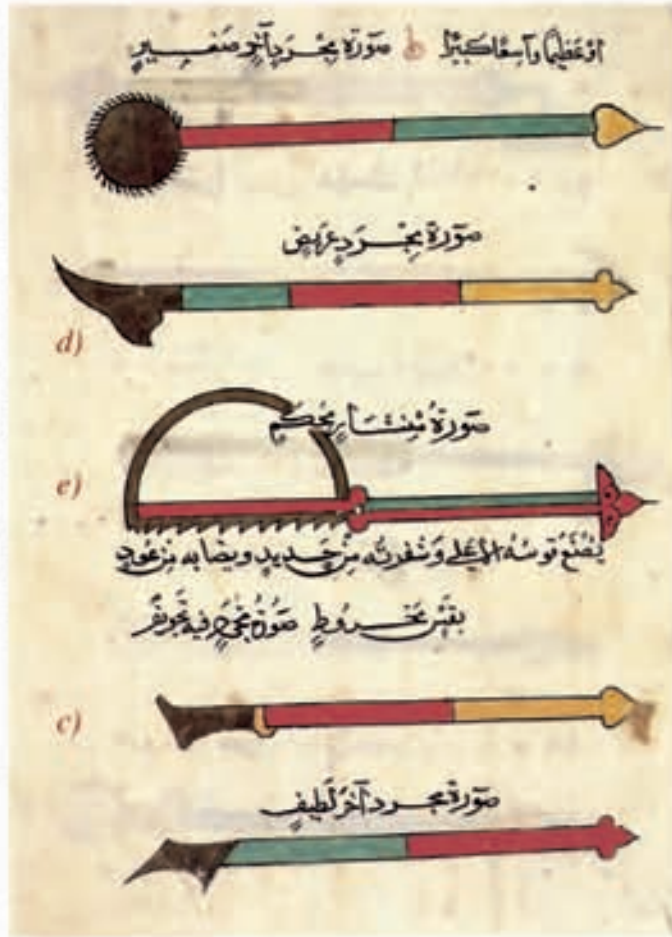 او عظيما واسعا كبيرا ط صورة مجرد اخر صغير
صورة مجرد عريض
d)
صورة منشار محكم
e)
يصنع قوسه الاعلى وشفرته من حديد ونصابه من عود
بقس مخروط صورة مجرد فيه تجويف
c)
صورة مجرد اخر لطيف